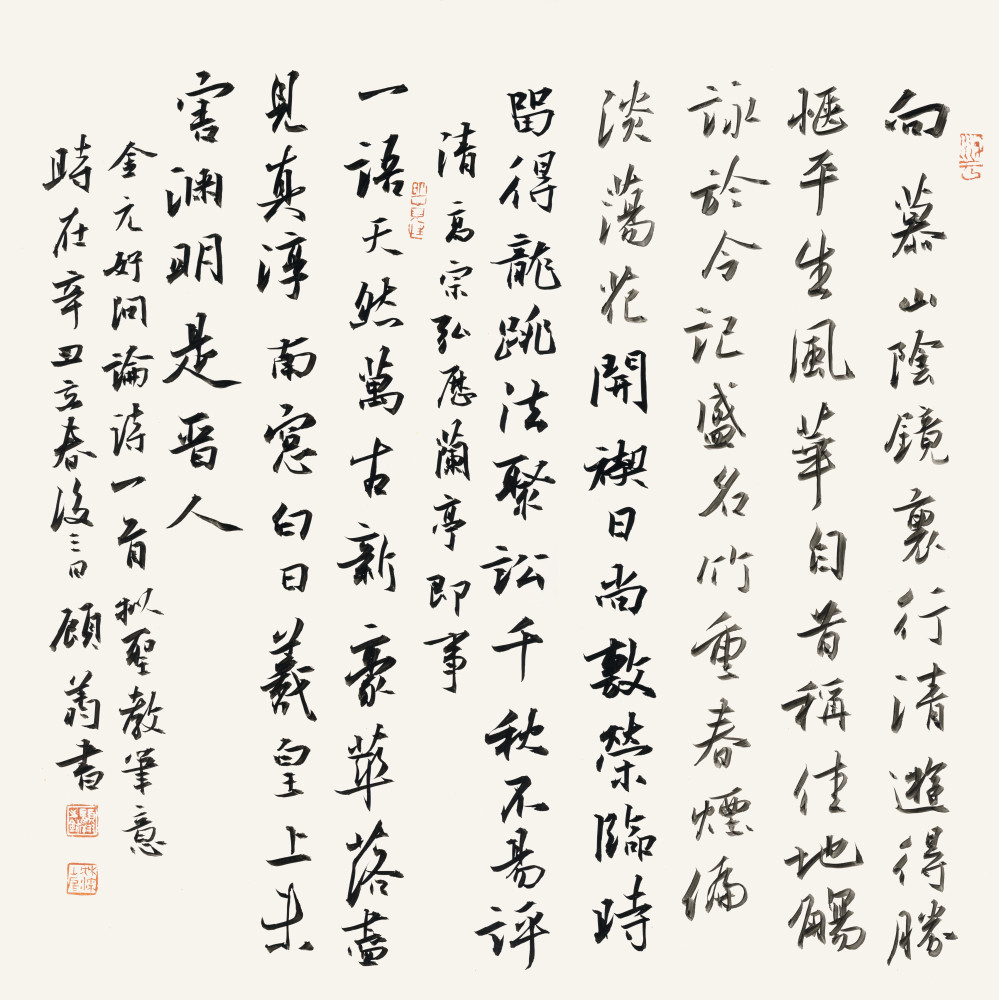 向慕山陰鏡裏行清遊得勝
愜平生風華自昔稱佳地觴
詠於今記盛名竹重春煙偏
淡蕩花開禊日尚敷榮臨時
留得龍跳法聚訟千秋不易評
清高宗弘歷蘭亭即事
一語天然萬古新豪華落盡
見真淳南窓白日羲皇上未
害淵明是晉人
金元好問論詩一首拟聖教筆意
時在辛丑立春後三日顧翁書